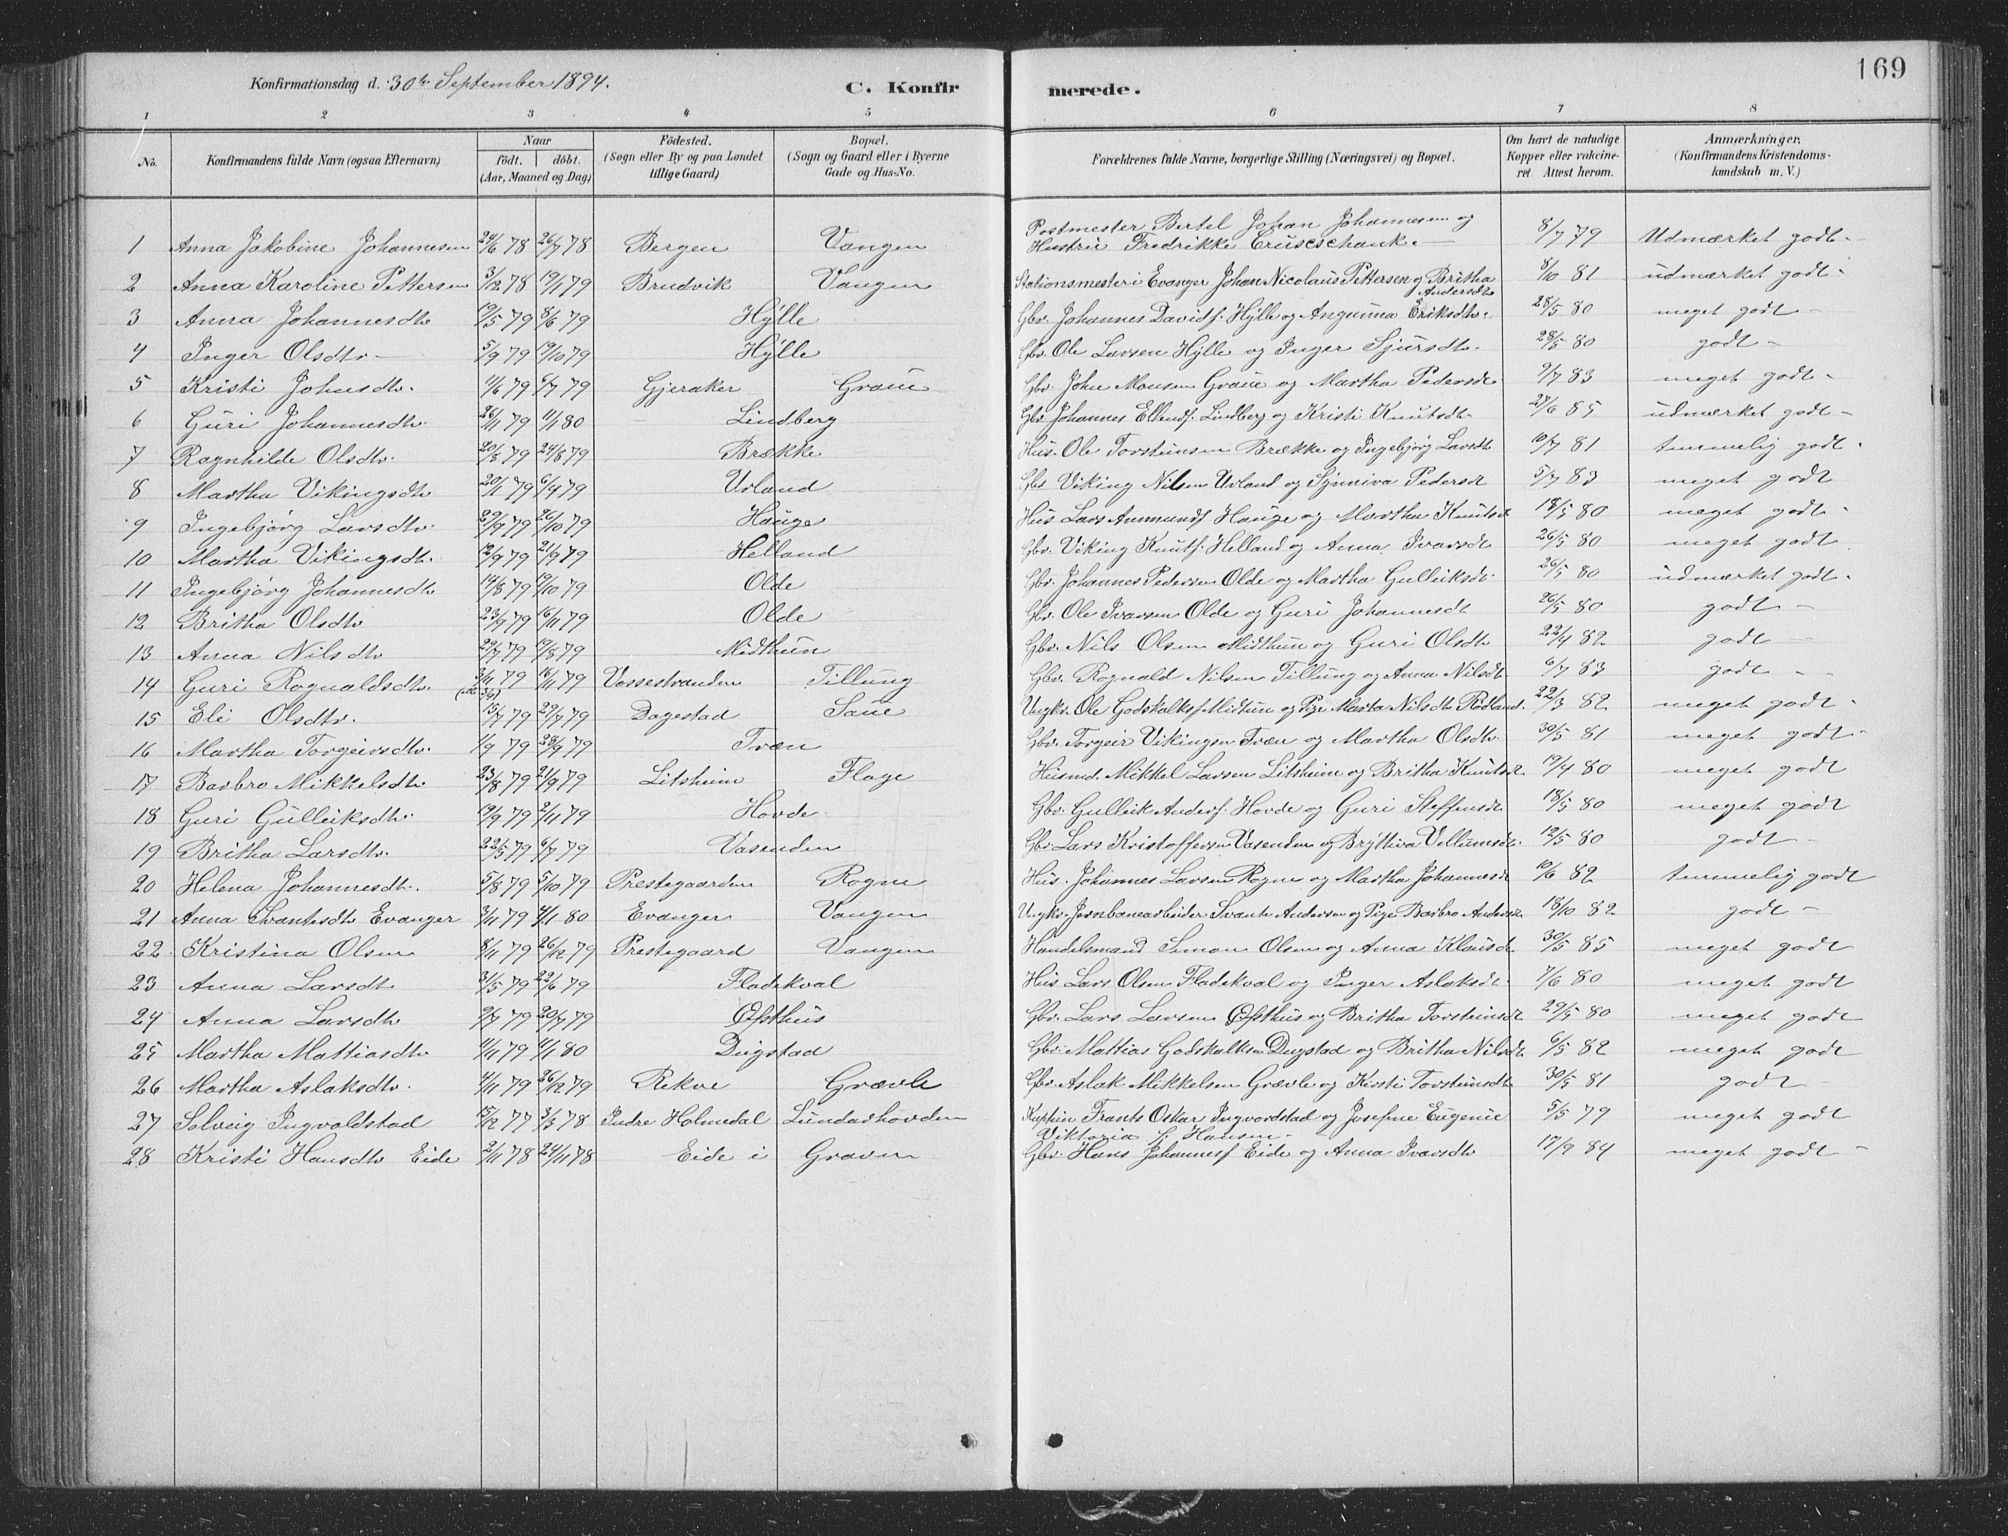 169
Konfirmationsdag d. 30te September 1894.
C. Konfirmerede.
1 2 3 4 5 6 7 8
No.
Konfirmandens fulde Navn (ogsaa Efternavn)
Naar
födt. döbt.
(Aar, Maaned og Dag)
Födested.
(Sogn eller By og paa Landet
tillige Gaard)
Bopæl.
(Sogn og Gaard eller i Byerne
Gade og Hus-No.
Forældrenes fulde Navne, borgerlige Stilling (Næringsvei) og Bopæl.
Om havt de naturlige
Kopper eller vakcine-
ret Attest herom.
Anmærkninger.
(Konfirmandens Kristendoms-
kundskab m. V.)
1 Anna Jakobine Johannesen 24/6 78 26/7 78 Bergen Vangen Postmester Bertel Johan Johannesen og Hustru Fredrikke 8/7 79 Udmærket godt
2 Anna Karoline Pettersen 3/12 78 19/1 79 Brudvik Vangen Stationsmester i Evanger Johan Nicolaus Pettersen og Britha Andersdt 8/10 81 udmærket godt
3 Anna Johannesdtr 19/5 79 8/6 79 Hylle Gbr. Johannes Davids. Hylle og Angunna Eriksdtr. 28/5 80 meget godt
4 Inger Olsdtr 5/9 79 19/10 79 Hylle Gbr. Ole Larsen Hylle og Inger Sjursdtr. 28/5 80 godt
5 Kristi Johnsdtr. 11/6 79 6/7 79 Gjeraker Graue Gbr. John Monsen Graue og Martha Pedersdt. 9/7 83 meget godt
6 Guri Johannesdtr. 26/11 79 11/1 80 Lindberg Gbr. Johannes Ellends. Lindberg og Kristi Knutsdt. 27/6 85 udmærket godt
7 Ragnhilde Olsdtr. 20/8 79 24/8 79 Brække Hus. Ole Torsteinsen Brække og Ingebjørg Larsdt 10/7 81 temmelig godt
8 Martha Vikingsdtr 79 6/9 79 Urland Gbr. Viking Nilsen Urland og Synniva Pedersdt 5/7 83 meget godt
9 Ingebjørg Larsdtr. 29/9 79 26/10 79 Hauge Hus Lars Anmunds. Hauge og Martha Knutsdt 18/5 80 meget godt
10 Martha Vikingsdt. 12/9 79 21/9 79 Helland Gbr. Viking Knuts. Helland og Anna Ivarsdt 26/5 80 meget godt
11 Ingebjørg Johannesdtr 14/8 79 19/10 79 Olde Gbr. Johannes Pedersen Olde og Martha Gulleiksdt. 26/5 80 udmærket godt
12 Britha Olsdtr 23/9 79 16/11 79 Olde Gbr. Ole Ivarsen Olde og Guri Johannesdt 26/5 80 godt
13 Anna Nilsdtr 29/7 79 19/8 79 Midthun Gbr. Nils Olsen Midthun og Guri Olsdtr 22/4 82 godt
14 Guri Rognaldsdtr. 3/11 79 16/11 79 Vossestranden Tillung Gbr. Rognald Nilsen Tillung og Anna Nilsdt 6/7 83 godt
15 Eli Olsdtr. 15/7 79 29/7 79 Dagestad Saue Ungkr. Ole Godskalks. Midtun og Pige Marta Nilsdtr Rødland. 22/3 82 meget godt
16 Martha Torgeirsdtr. 1/9 79 28/9 79 Træn Gbr. Torgeir Vikingsen Træn og Martha Olsdtr. 30/5 81 meget godt
17 Barbro Mikkelsdtr 23/8 79 21/9 79 Litsheim Flage Husmd. Mikkel Larsen Litsheim og Britha Knutsdt. 19/4 80 meget godt
18 Guri Gulleiksdtr. 19/9 79 2/11 79 Hovde Gbr. Gulleik Anders. Hovde og Guri Steffensdt 18/5 80 meget godt
19 Britha Larsdtr. 22/5 79 6/7 79 Vasenden Gbr. Lars Kristoffersen Vasenden og Bryttiva Vellumsdt. 12/5 80 godt
20 Helena Johannesdt. 5/8 79 5/10 79 Prestegaarden Rogne Hus. Johannes Larsen Rogne og Martha Johannesdt 10/6 82 temmelig godt
21 Anna Svantesdtr Evanger 3/11 79 4/1 80 Evanger Vangen Ungkr. Jernbanearbeider Svante Andersen og Pige Barbro Andersdt. 18/10 82 godt
22 Kristina Olsen 8/11 79 26/12 79 Prestegaard Vangen Handelsmand Simon Olsen og Anna Klausdt 30/5 85 meget godt
23 Anna Larsdt 31/5 79 22/6 79 Fladekval Hus Lars Olsen Fladekval og Inger Aslaksdt. 7/6 80 meget godt
24 Anna Larsdtr 9/7 79 20/7 79 Øfsthus Gbr. Lars Larsen Øfsthus og Britha Torsteinsdt 29/5 80 meget godt
25 Martha Mattiasdtr 11/11 79 11/1 80 Dugstad Gbr. Mattias Godskalksen Dugstad og Britha Nilsdt 6/5 82 meget godt
26 Martha Aslaksdtr. 4/11 79 26/12 79 Rekve Grævle Gbr. Aslak Mikkelsen Grævle og Kirsti Torsteinsdt 30/5 81 godt
27 Solveig Ingvoldstad 15/12 77 3/3 78 Indre Holmedal Lundarhovden Kaptein Frants Oskar Ingvordstad og Josefine Eugenie Viktoria f. Hansen 5/5 79 meget godt
28 Kristi Hansdtr Eide 2/11 78 24/11 78 Eide i Graven Gbr. Hans Johannes. Eide og Anna Ivarsdtr 17/9 84 meget godt